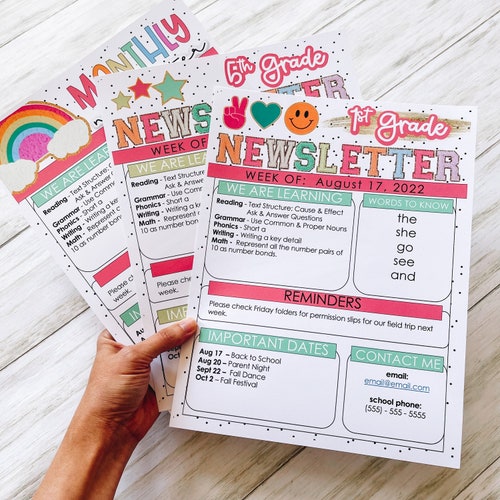 MONTHLY
5th Grade
NEWS
WEEK OF:
WE ARE LEARN
Reading - Text Structure
Ask & Answer
Grammar - Use Comm
Phonics - Short a
Writing - Writing a key
Math - Represent all
10 as number bonds.
Please
week.
WE ARE LEARNING
Reading - Text Structure:
Ask & Answer
Grammar - Use Common
Phonics - Short a
Writing - Writing a key
Math - Represent all the
10 as number bonds.
Please
week.
1st Grade
NEWSLETTER
WEEK OF: August 17, 2022
WE ARE LEARNING
Reading - Text Structure: Cause & Effect
Ask & Answer Questions
Grammar - Use Common & Proper Nouns
Phonics - Short a
Writing - Writing a key detail
Math - Represent all the number pairs of
10 as number bonds.
WORDS TO KNOW
the
she
go
see
and
REMINDERS
Please check Friday folders for permission slips for our field trip next
week.
IMPORTANT DATES
Aug 17 – Back to School
Aug 20 – Parent Night
Sept 22 – Fall Dance
Oct 2 – Fall Festival
CONTACT ME
email:
email@email.com
school phone:
(555) - 555 - 5555